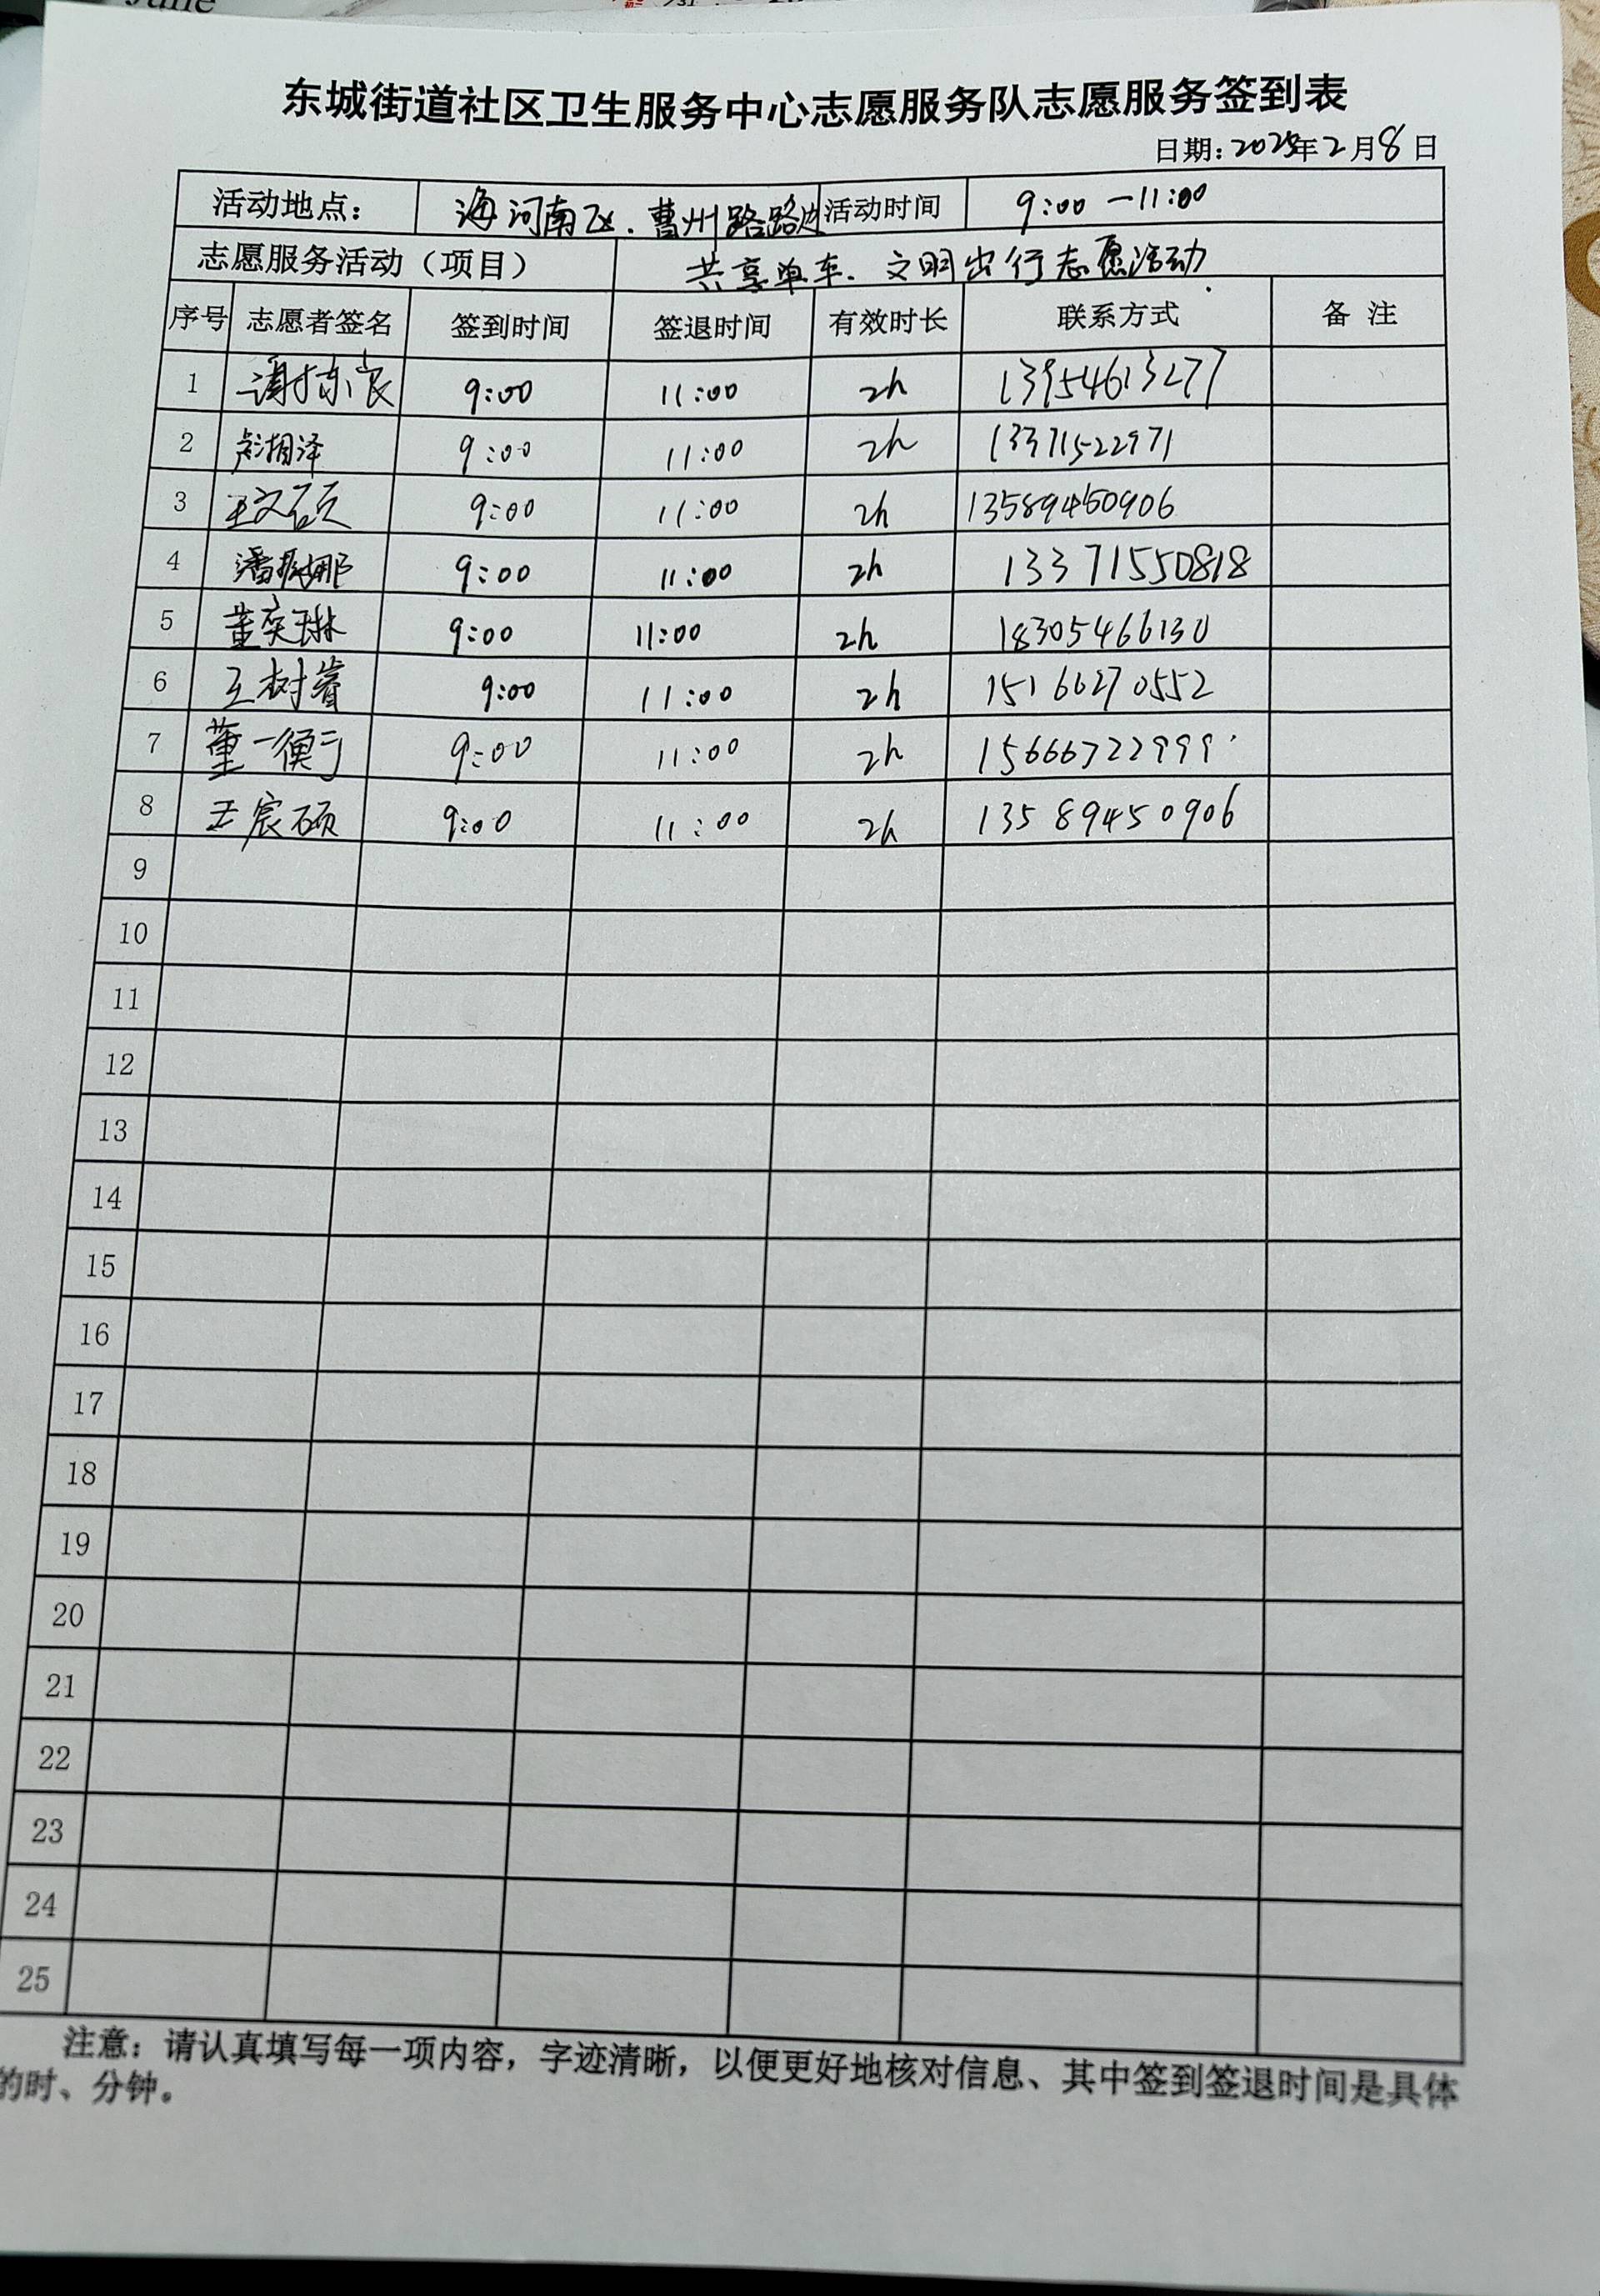 June
东城街道社区卫生服务中心志愿服务队志愿服务签到表
日期:2025年2月8日
活动地点: 海河南区.曹州路路边 活动时间 9:00-11:00
志愿服务活动(项目) 共享单车.文明出行志愿活动.
序号 志愿者签名 签到时间 签退时间 有效时长 联系方式 备 注
1 谢东良 9:00 11:00 2h 13954613277
2 彭湘泽 9:00 11:00 2h 13371522971
3 王文硕 9:00 11:00 2h 13589450906
4 潘娜娜 9:00 11:00 2h 13371550818
5 董奕琳 9:00 11:00 2h 18305466130
6 王树睿 9:00 11:00 2h 15166270552
7 董一衡 9:00 11:00 2h 15666722999
8 王宸硕 9:00 11:00 2h 13589450906
9
10
11
12
13
14
15
16
17
18
19
20
21
22
23
24
25
注意:请认真填写每一项内容,字迹清晰,以便更好地核对信息、其中签到签退时间是具体
的时、分钟。